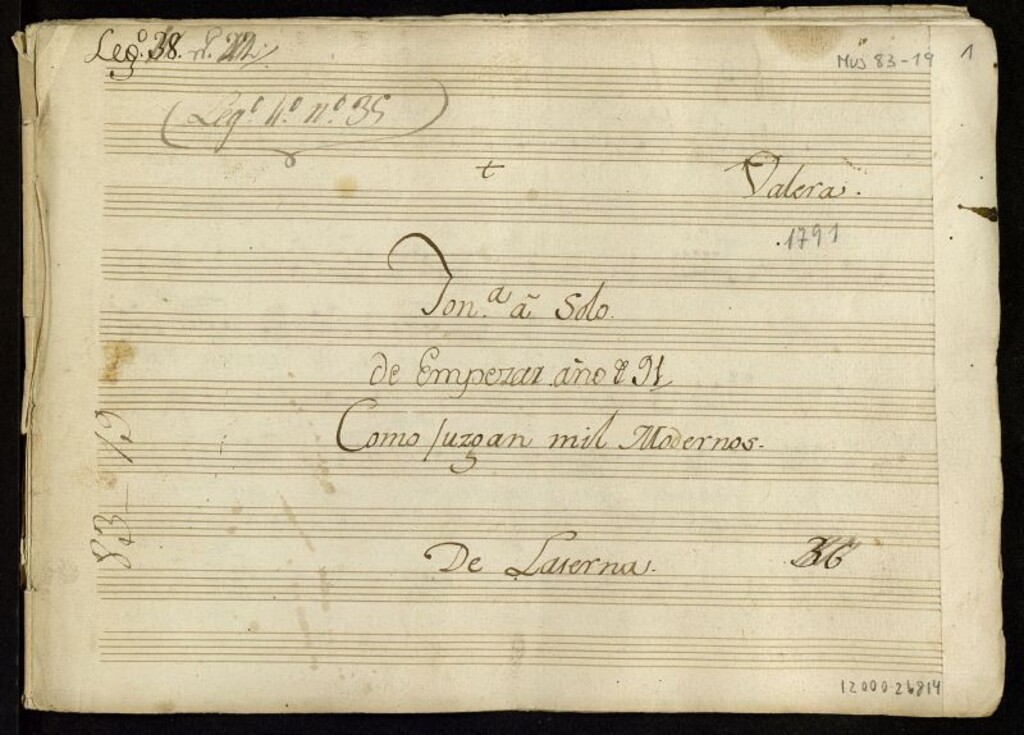 Leg.º 38. nº 22.
Mus 83-19
1
(Legº 11º nº 35)
+
Valera.
.1791
Ton.ª â Solo.
de Empezar año d 91
Como Juzgan mil Modernos.
De Laserna.
36
83-19
12000-26814